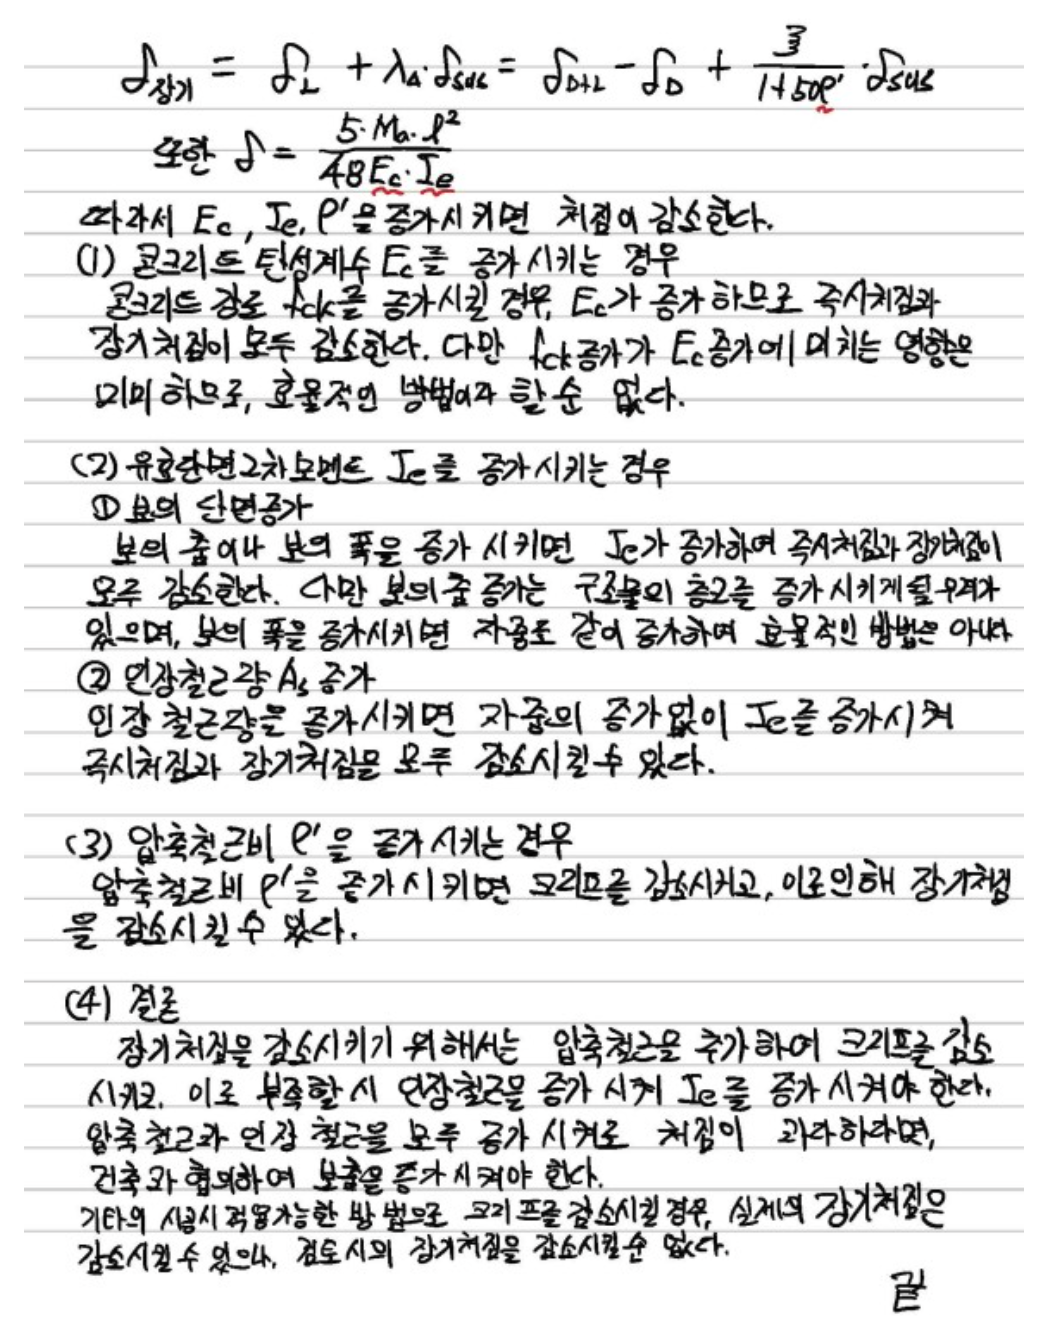 δ장기 = δL + λΔ·δsus = δD+L - δD + 3/(1+50ρ') ·δsus
또한 δ = 5·Ma·l²/(48Ec·Ie)
따라서 Ec, Ie, ρ'을 증가시키면 처짐이 감소한다.
(1) 콘크리트 탄성계수 Ec를 증가시키는 경우
콘크리트 강도 fck를 증가시킬 경우, Ec가 증가하므로 즉시처짐과
장기처짐이 모두 감소한다. 다만 fck증가가 Ec증가에 미치는 영향은
미미하므로, 효율적인 방법이라 할 순 없다.
(2) 유효단면2차모멘트 Ie를 증가시키는 경우
① 보의 단면증가
보의 춤이나 보의 폭을 증가시키면 Ie가 증가하여 즉시처짐과 장기처짐이
모두 감소한다. 다만 보의 춤 증가는 구조물의 층고를 증가시키게될 우려가
있으며, 보의 폭을 증가시키면 자중도 같이 증가하여 효율적인 방법은 아니다
② 인장철근량 As 증가
인장 철근량을 증가시키면 자중의 증가없이 Ie를 증가시켜
즉시처짐과 장기처짐을 모두 감소시킬 수 있다.
(3) 압축철근비 ρ'을 증가시키는 경우
압축철근비 ρ'을 증가시키면 크리프를 감소시키고, 이로인해 장기처짐
을 감소시킬 수 있다.
(4) 결론
장기처짐을 감소시키기 위해서는 압축철근을 추가하여 크리프를 감소
시키고, 이로 부족할 시 인장철근을 증가시켜 Ie를 증가시켜야 한다.
압축철근과 인장 철근을 모두 증가시켜도 처짐이 과다하다면,
건축과 협의하여 보춤을 증가시켜야 한다.
기타의 시공시 적용가능한 방법으로 크리프를 감소시킬 경우, 실제의 장기처짐은
감소시킬 수 있으나, 검토시의 장기처짐을 감소시킬 순 없다.
끝